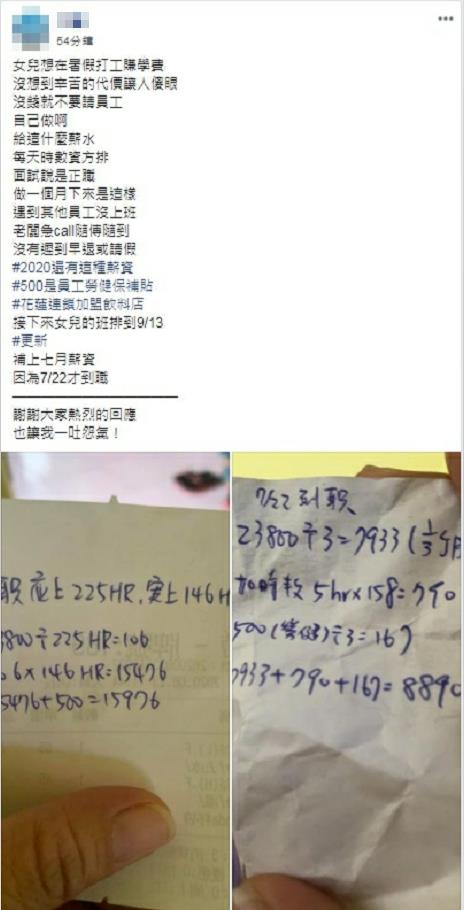 54分鐘
女兒想在暑假打工賺學費
沒想到辛苦的代價讓人傻眼
沒錢就不要請員工
自己做啊
給這什麼薪水
每天時數資方排
面試說是正職
做一個月下來是這樣
遇到其他員工沒上班
老闆急call隨傳隨到
沒有遲到早退或請假
#2020還有這種薪資
#500是員工勞健保補貼
#花蓮連鎖加盟飲料店
接下來女兒的班排到9/13
#更新
補上七月薪資
因為7/22才到職
謝謝大家熱烈的回應
也讓我一吐怨氣！
職應上225HR,實上146H
3800÷225HR=106
06×146HR=15476
5476+500=15976
7/22到職
23800÷3=7933(1/3
加時數5hr×158=790
500(勞健)÷3=167
7933+790+167=8890